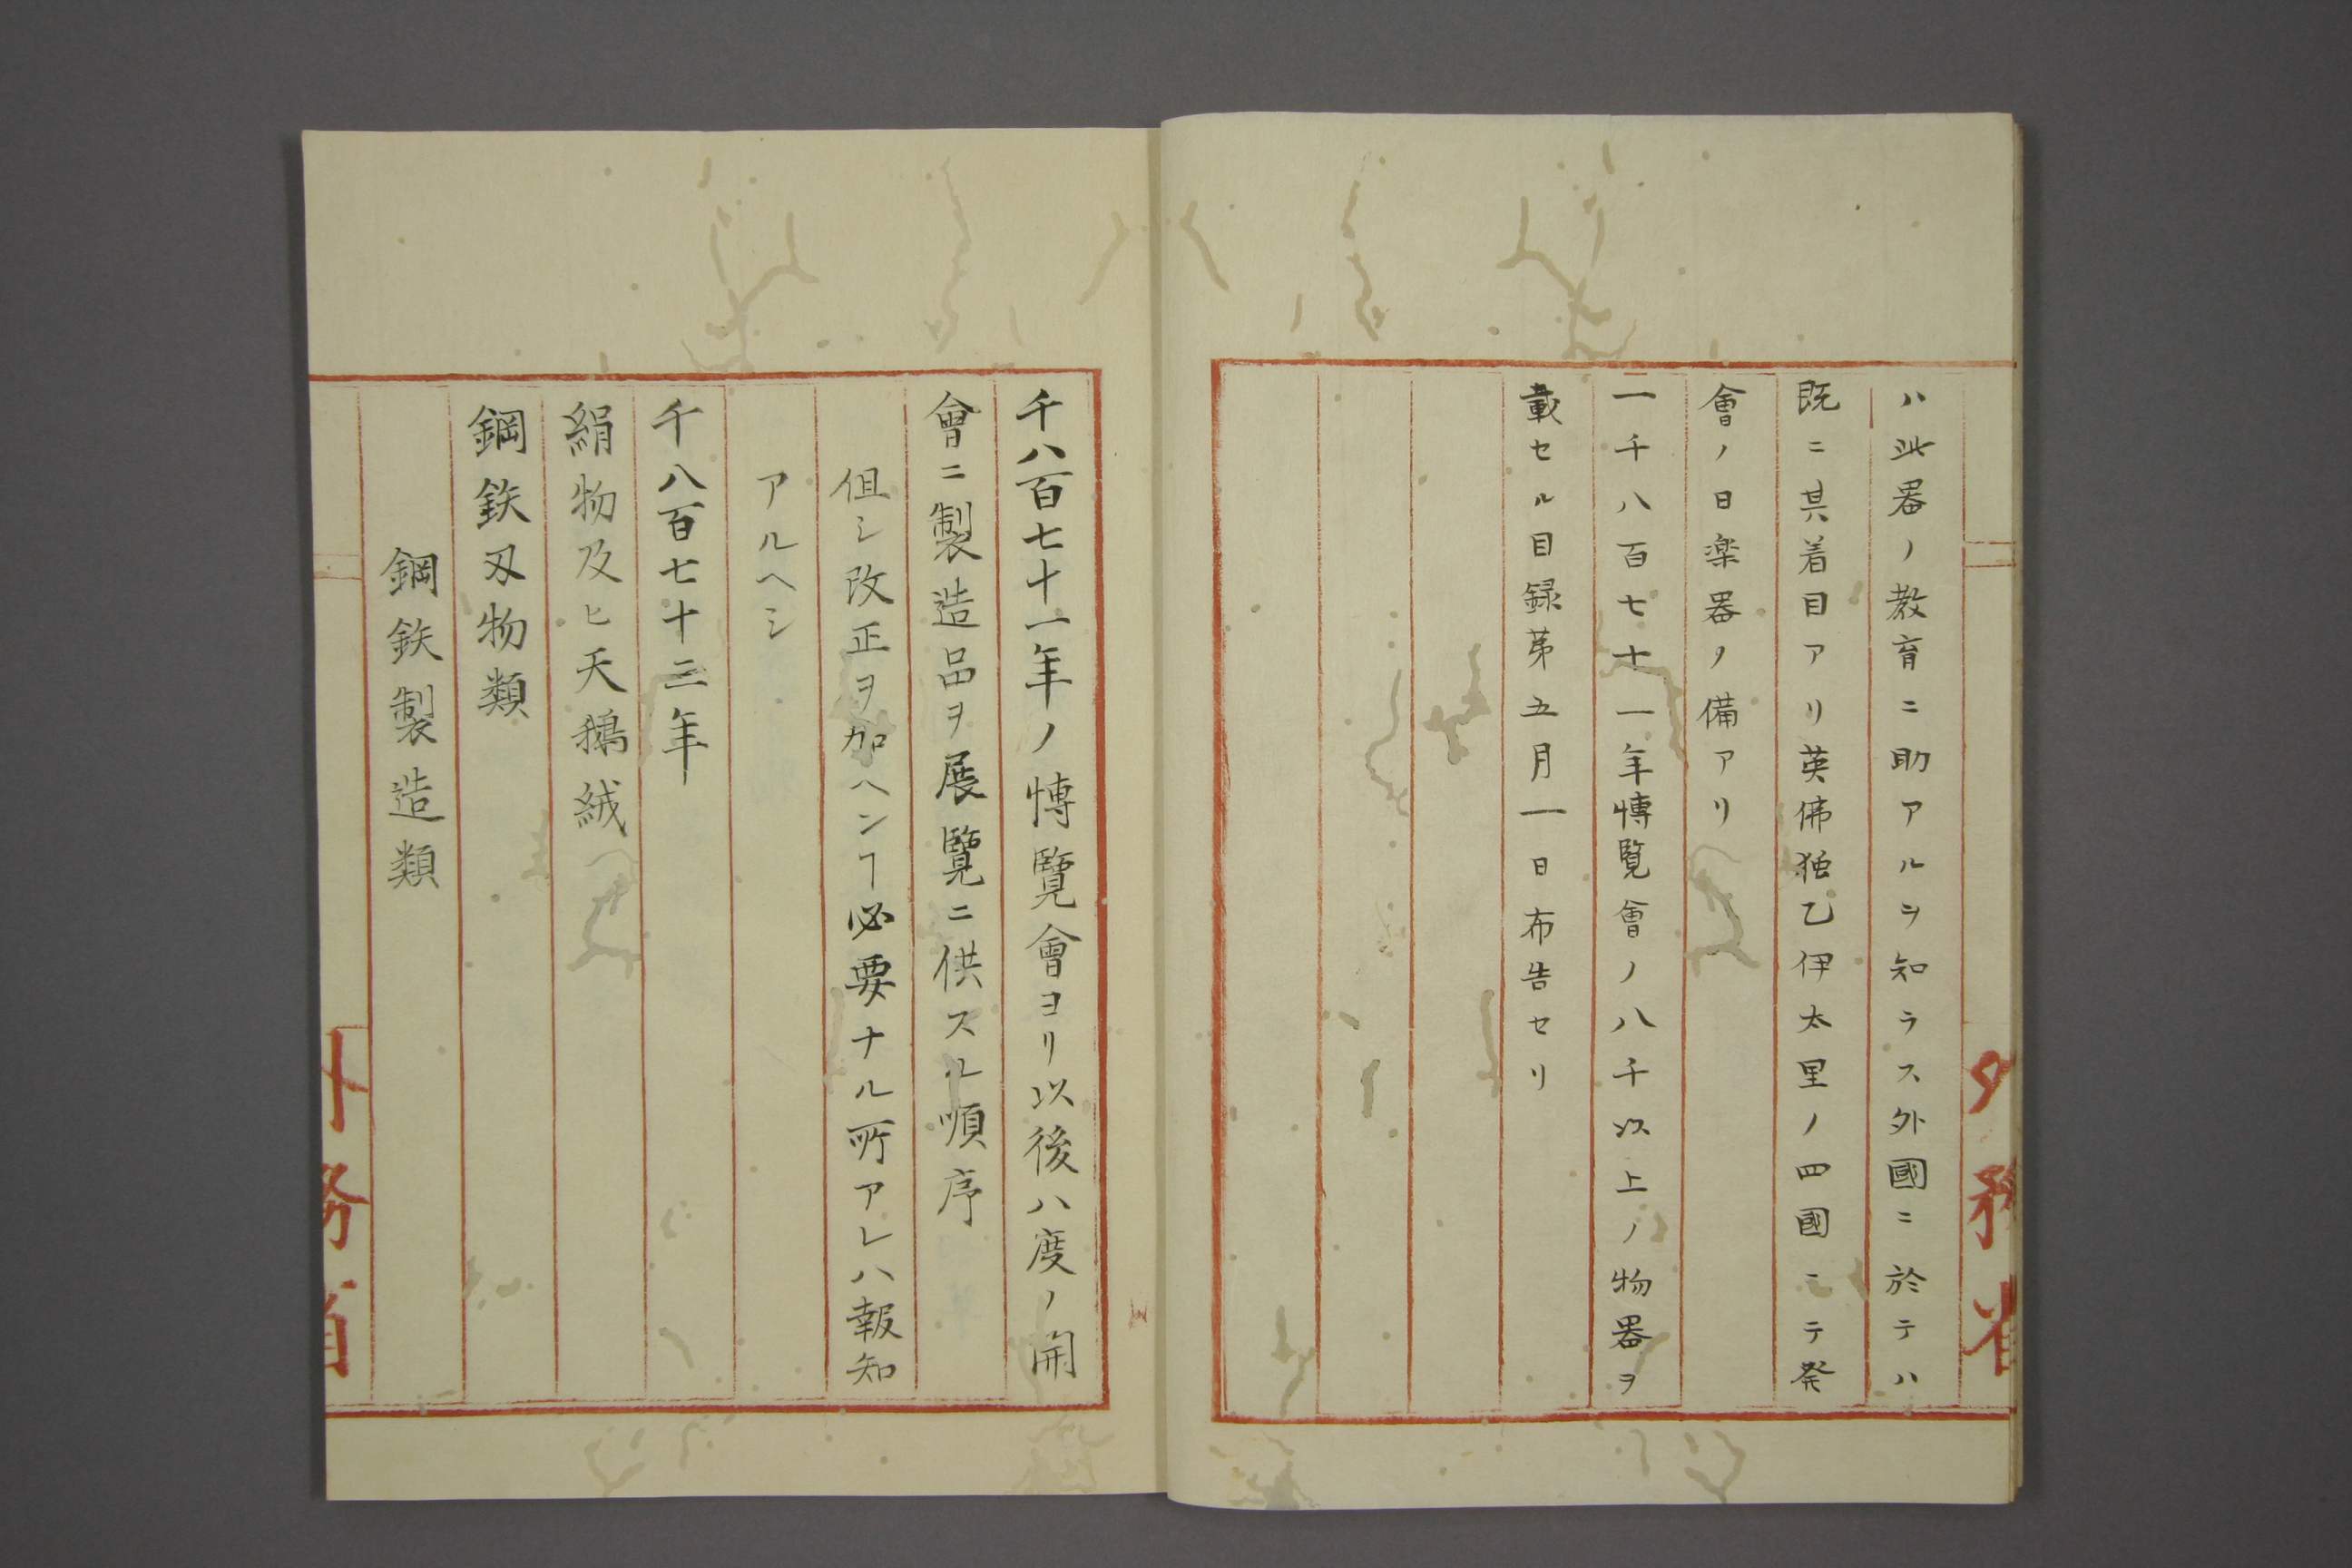 ハ此器ノ教育ニ助アルヲ知ラス外國ニ於テハ
既ニ其着目アリ英佛独乙伊太里ノ四國ニテ発
會ノ日楽器ノ備アリ
一千八百七十一年博覧會ノ八千以上ノ物器ヲ
載セル目録第五月一日布告セリ
外務省
千八百七十一年ノ博覽會ヨリ以後八度ノ開
會ニ製造品ヲ展覽ニ供スル順序
但シ改正ヲ加ヘンヿ必要ナル所アレハ報知
アルヘシ
千八百七十三年
絹物及ヒ天鵞絨
鋼鉄刃物類
鋼鉄製造類
外務省